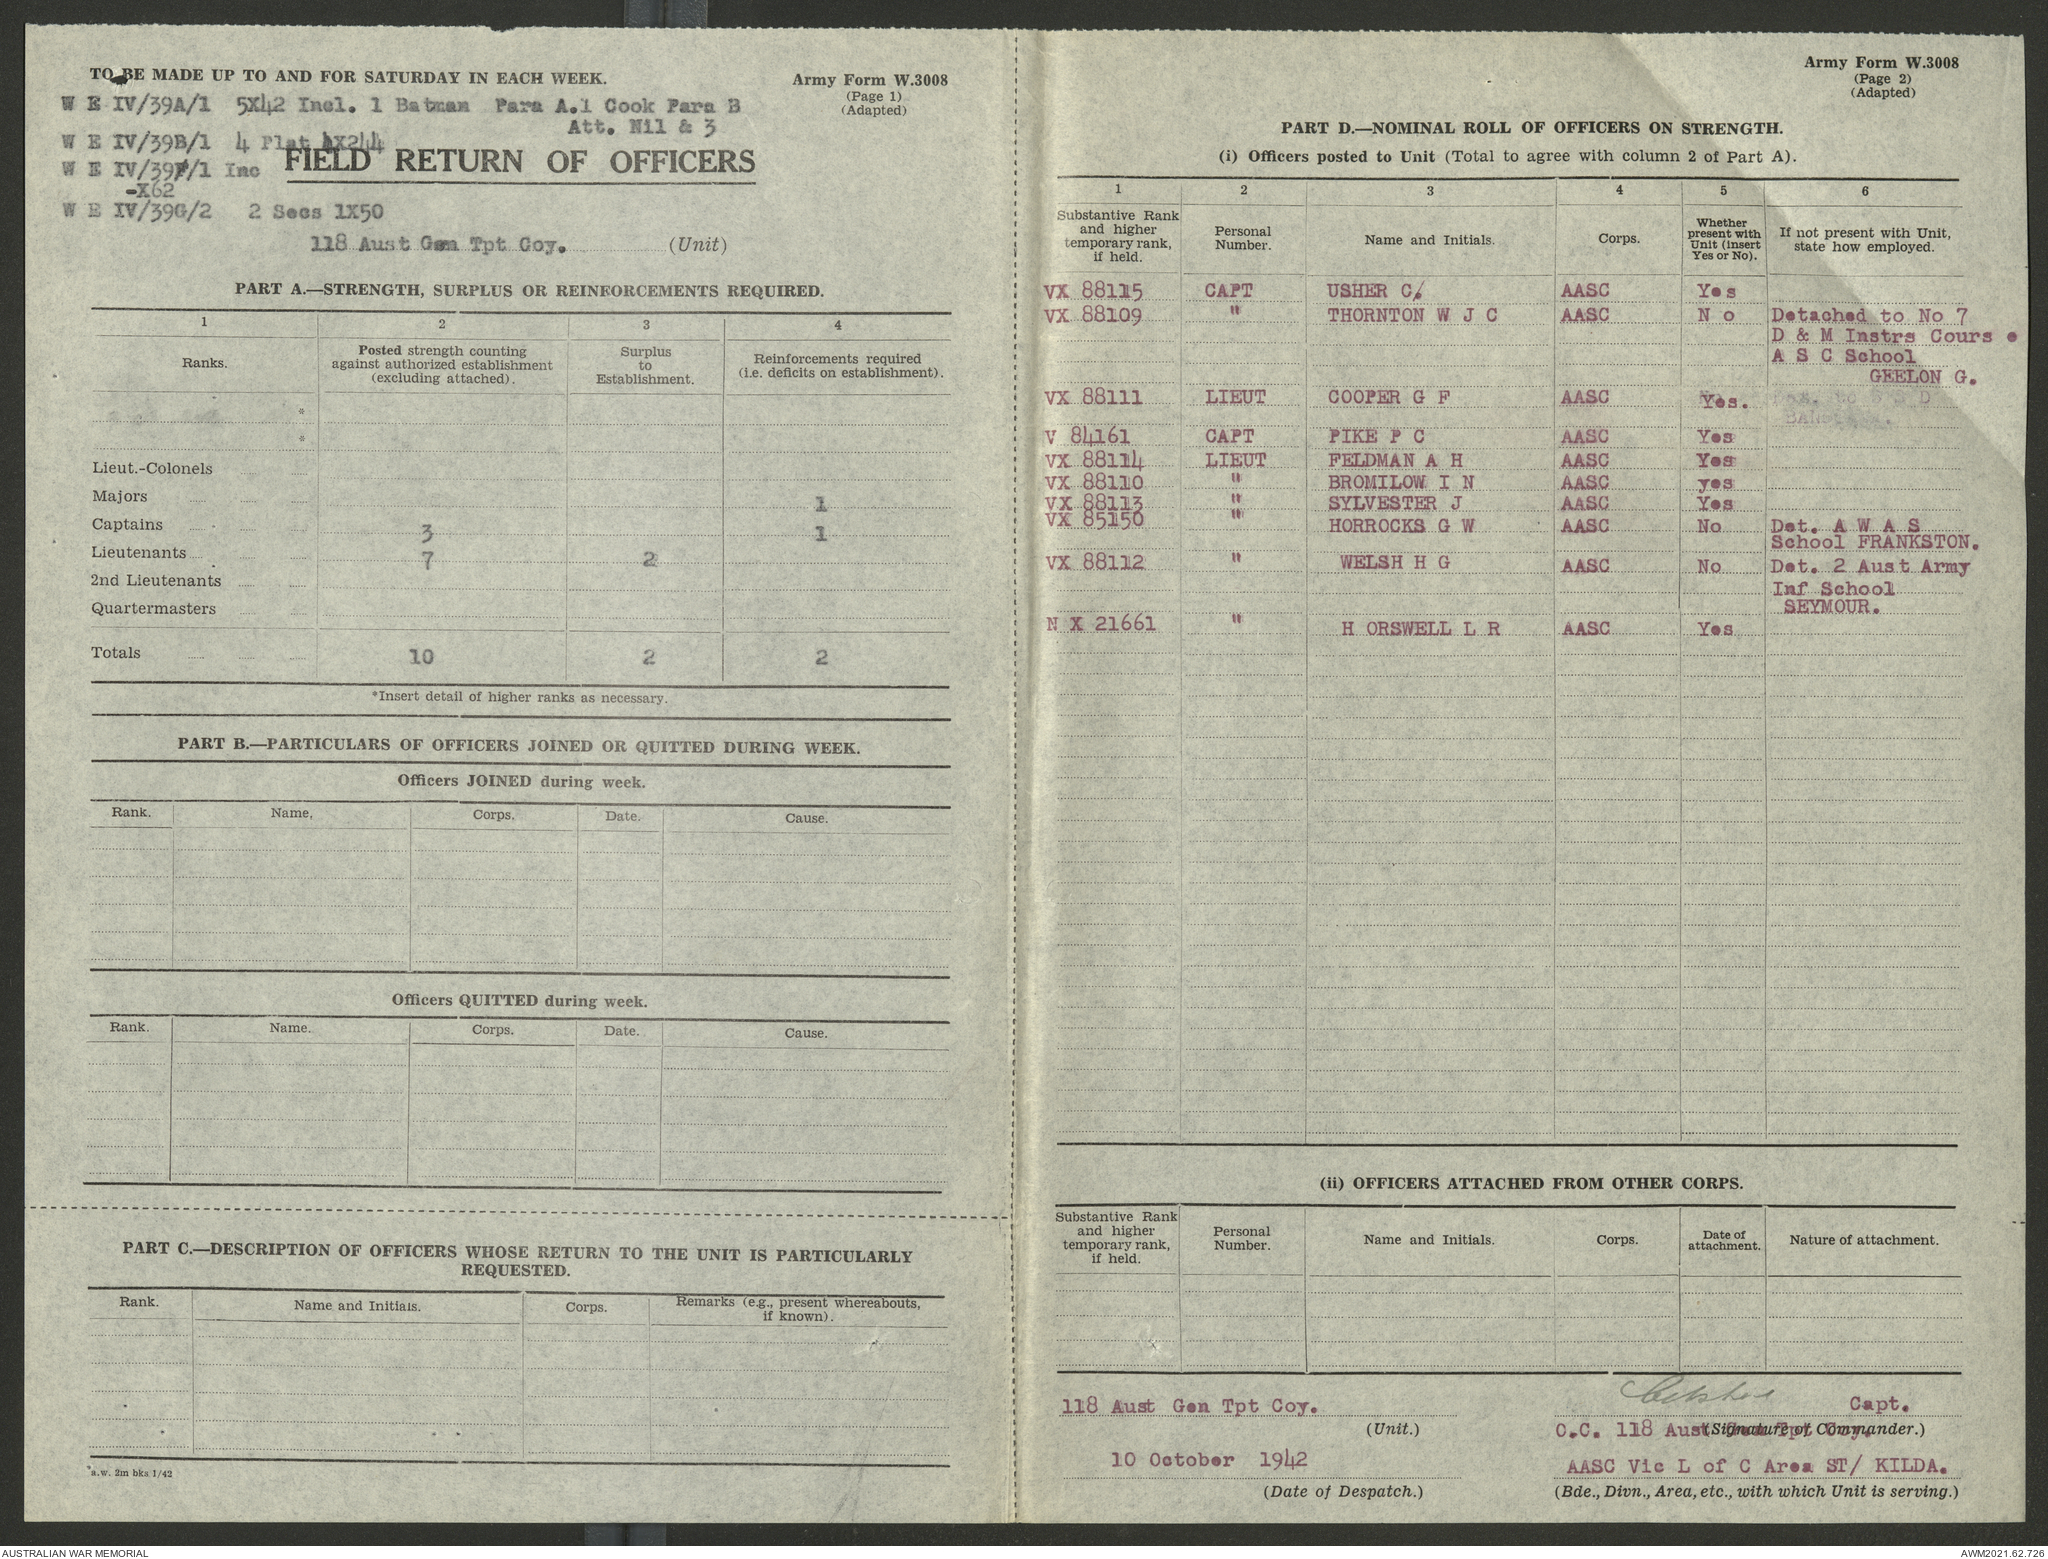 TO BE MADE UP TO AND FOR SATURDAY IN EACH WEEK.
Army Form W.3008
(Page 1)
(Adapted)
W E IV/39A/1 5X42 Incl. 1 Batman Para A.1 Cook Para B
Att. Nil & 3
W E IV/39B/1 4 Plat 4X244
W E IV/39F/1 Inc
-X62
FIELD RETURN OF OFFICERS
W E IV/39G/2 2 Secs 1X50
118 Aust Gen Tpt Coy. (Unit)
PART A.—STRENGTH, SURPLUS OR REINFORCEMENTS REQUIRED.
1 2 3 4
Ranks. Posted strength counting against authorized establishment (excluding attached). Surplus to Establishment. Reinforcements required (i.e. deficits on establishment).
*
*
Lieut.-Colonels
Majors 1
Captains 3 1
Lieutenants 7 2
2nd Lieutenants
Quartermasters
Totals 10 2 2
*Insert detail of higher ranks as necessary.
PART B.—PARTICULARS OF OFFICERS JOINED OR QUITTED DURING WEEK.
Officers JOINED during week.
Rank. Name. Corps. Date. Cause.
Officers QUITTED during week.
Rank. Name. Corps. Date. Cause.
PART C.—DESCRIPTION OF OFFICERS WHOSE RETURN TO THE UNIT IS PARTICULARLY
REQUESTED.
Rank. Name and Initials. Corps. Remarks (e.g., present whereabouts, if known).
*a.w. 2m bks 1/42
Army Form W.3008
(Page 2)
(Adapted)
PART D.—NOMINAL ROLL OF OFFICERS ON STRENGTH.
(i) Officers posted to Unit (Total to agree with column 2 of Part A).
1 2 3 4 5 6
Substantive Rank and higher temporary rank, if held. Personal Number. Name and Initials. Corps. Whether present with Unit (insert Yes or No). If not present with Unit, state how employed.
VX 88115 CAPT USHER C. AASC Yes
VX 88109 " THORNTON W J C AASC N o Detached to No 7
D & M Instrs Cours e
A S C School
GEELON G.
VX 88111 LIEUT COOPER G F AASC Yes.
V 84161 CAPT PIKE P C AASC Yes
VX 88114 LIEUT FELDMAN A H AASC Yes
VX 88110 " BROMILOW I N AASC yes
VX 88113 " SYLVESTER J AASC Yes
VX 85150 " HORROCKS G W AASC No Det. A W A S
School FRANKSTON.
VX 88112 " WELSH H G AASC No Det. 2 Aust Army
Inf School
SEYMOUR.
N X 21661 " H ORSWELL L R AASC Yes
(ii) OFFICERS ATTACHED FROM OTHER CORPS.
Substantive Rank and higher temporary rank, if held. Personal Number. Name and Initials. Corps. Date of attachment. Nature of attachment.
118 Aust Gen Tpt Coy. Capt.
(Unit.) O.C. 118 Aust Gen Tpt Coy. (Signature of Commander.)
10 October 1942 AASC Vic L of C Area ST/ KILDA.
(Date of Despatch.) (Bde., Divn., Area, etc., with which Unit is serving.)
AUSTRALIAN WAR MEMORIAL
AWM2021.62.726